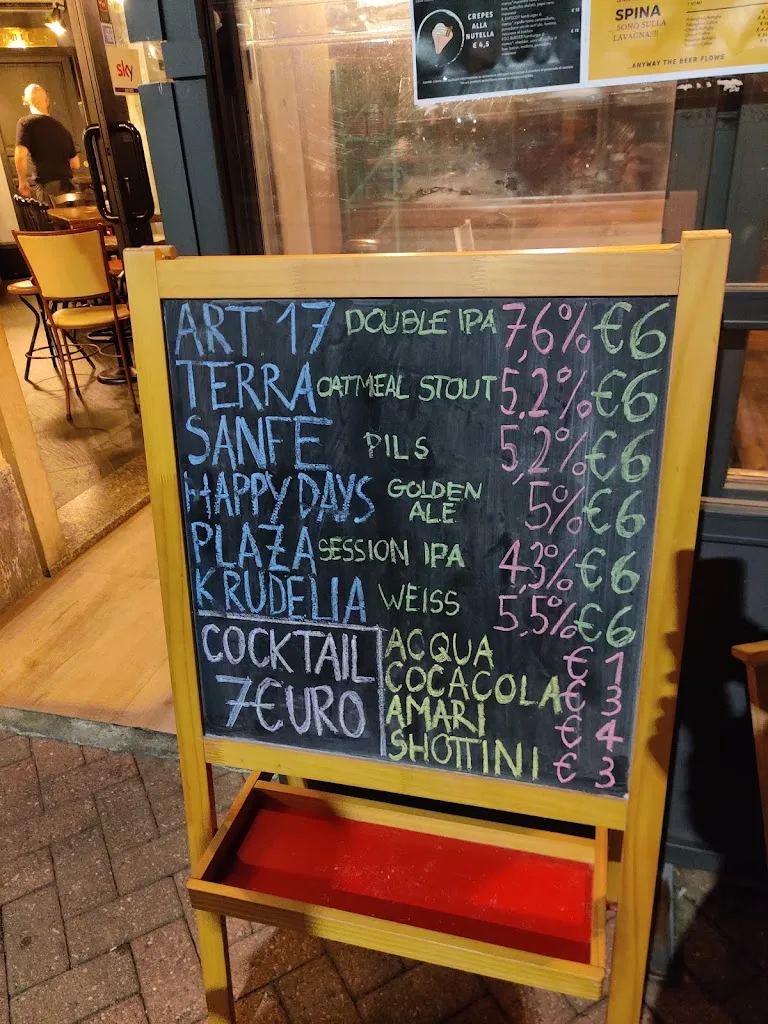 sky
CREPES
ALLA
NUTELLA
€ 4,5
SPINA
SONO SULLA
LAVAGNA!!!
...ANYWAY THE BEER FLOWS
ART. 17 DOUBLE IPA 7,6% €6
TERRA OATMEAL STOUT 5,2% €6
SANFE PILS 5,2% €6
HAPPY DAYS GOLDEN ALE 5% €6
PLAZA SESSION IPA 4,3% €6
KRUDELIA WEISS 5,5% €6
COCKTAIL
7€URO
ACQUA € 1
COCACOLA € 3
AMARI € 4
SHOTTINI € 3